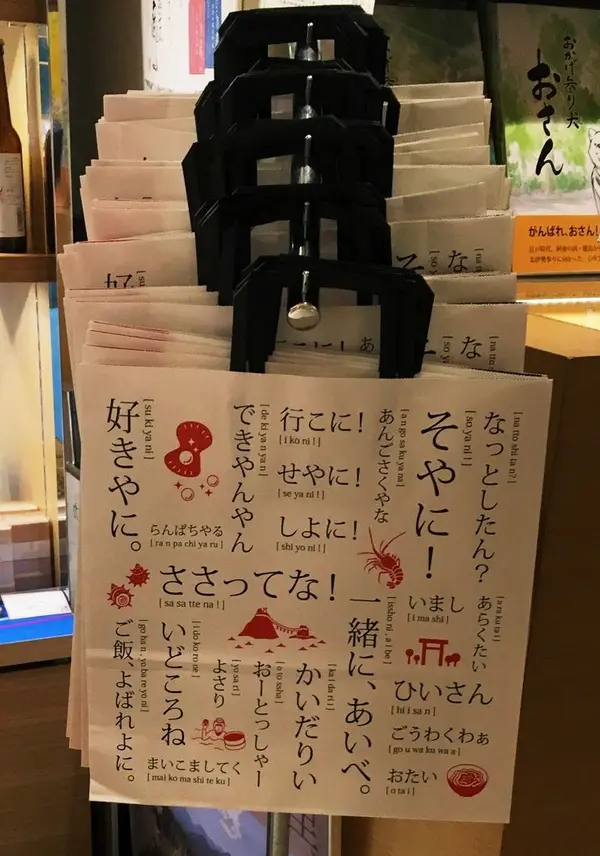 おかげ参り犬
おさん
がんばれ、おさん!
な
[ na tto
そ
[ so ya
好
[ su
あ
なっとしたん?
[ na tto shi ta n? ]
そやに!
[ so ya ni ! ]
あんごさくやな
[ a n go sa ku ya na ]
行こに!
[ i ko ni ! ]
せやに!
[ se ya ni ! ]
しよに!
[ shi yo ni ! ]
できやんやん
[ de ki ya n ya n ]
らんぱちやる
[ ra n pa chi ya ru ]
好きやに。
[ su ki ya ni ]
ささってな!
[ sa sa tte na ! ]
あらくたい
[ a ra ku ta i ]
いまし
[ i ma shi ]
ひいさん
[ hi i sa n ]
ごうわくわぁ
[ go u wa ku wa a ]
おたい
[ o ta i ]
一緒に、あいべ。
[ issho ni , a i be ]
かいだりい
[ ka i da ri i ]
おーとっしゃー
[ o to ssha ]
よさり
[ yo sa ri ]
いどころね
[ i do ko ro ne ]
まいこましてく
[ mai ko ma shi te ku ]
ご飯、よばれよに。
[ go ha n , yo ba re yo ni ]